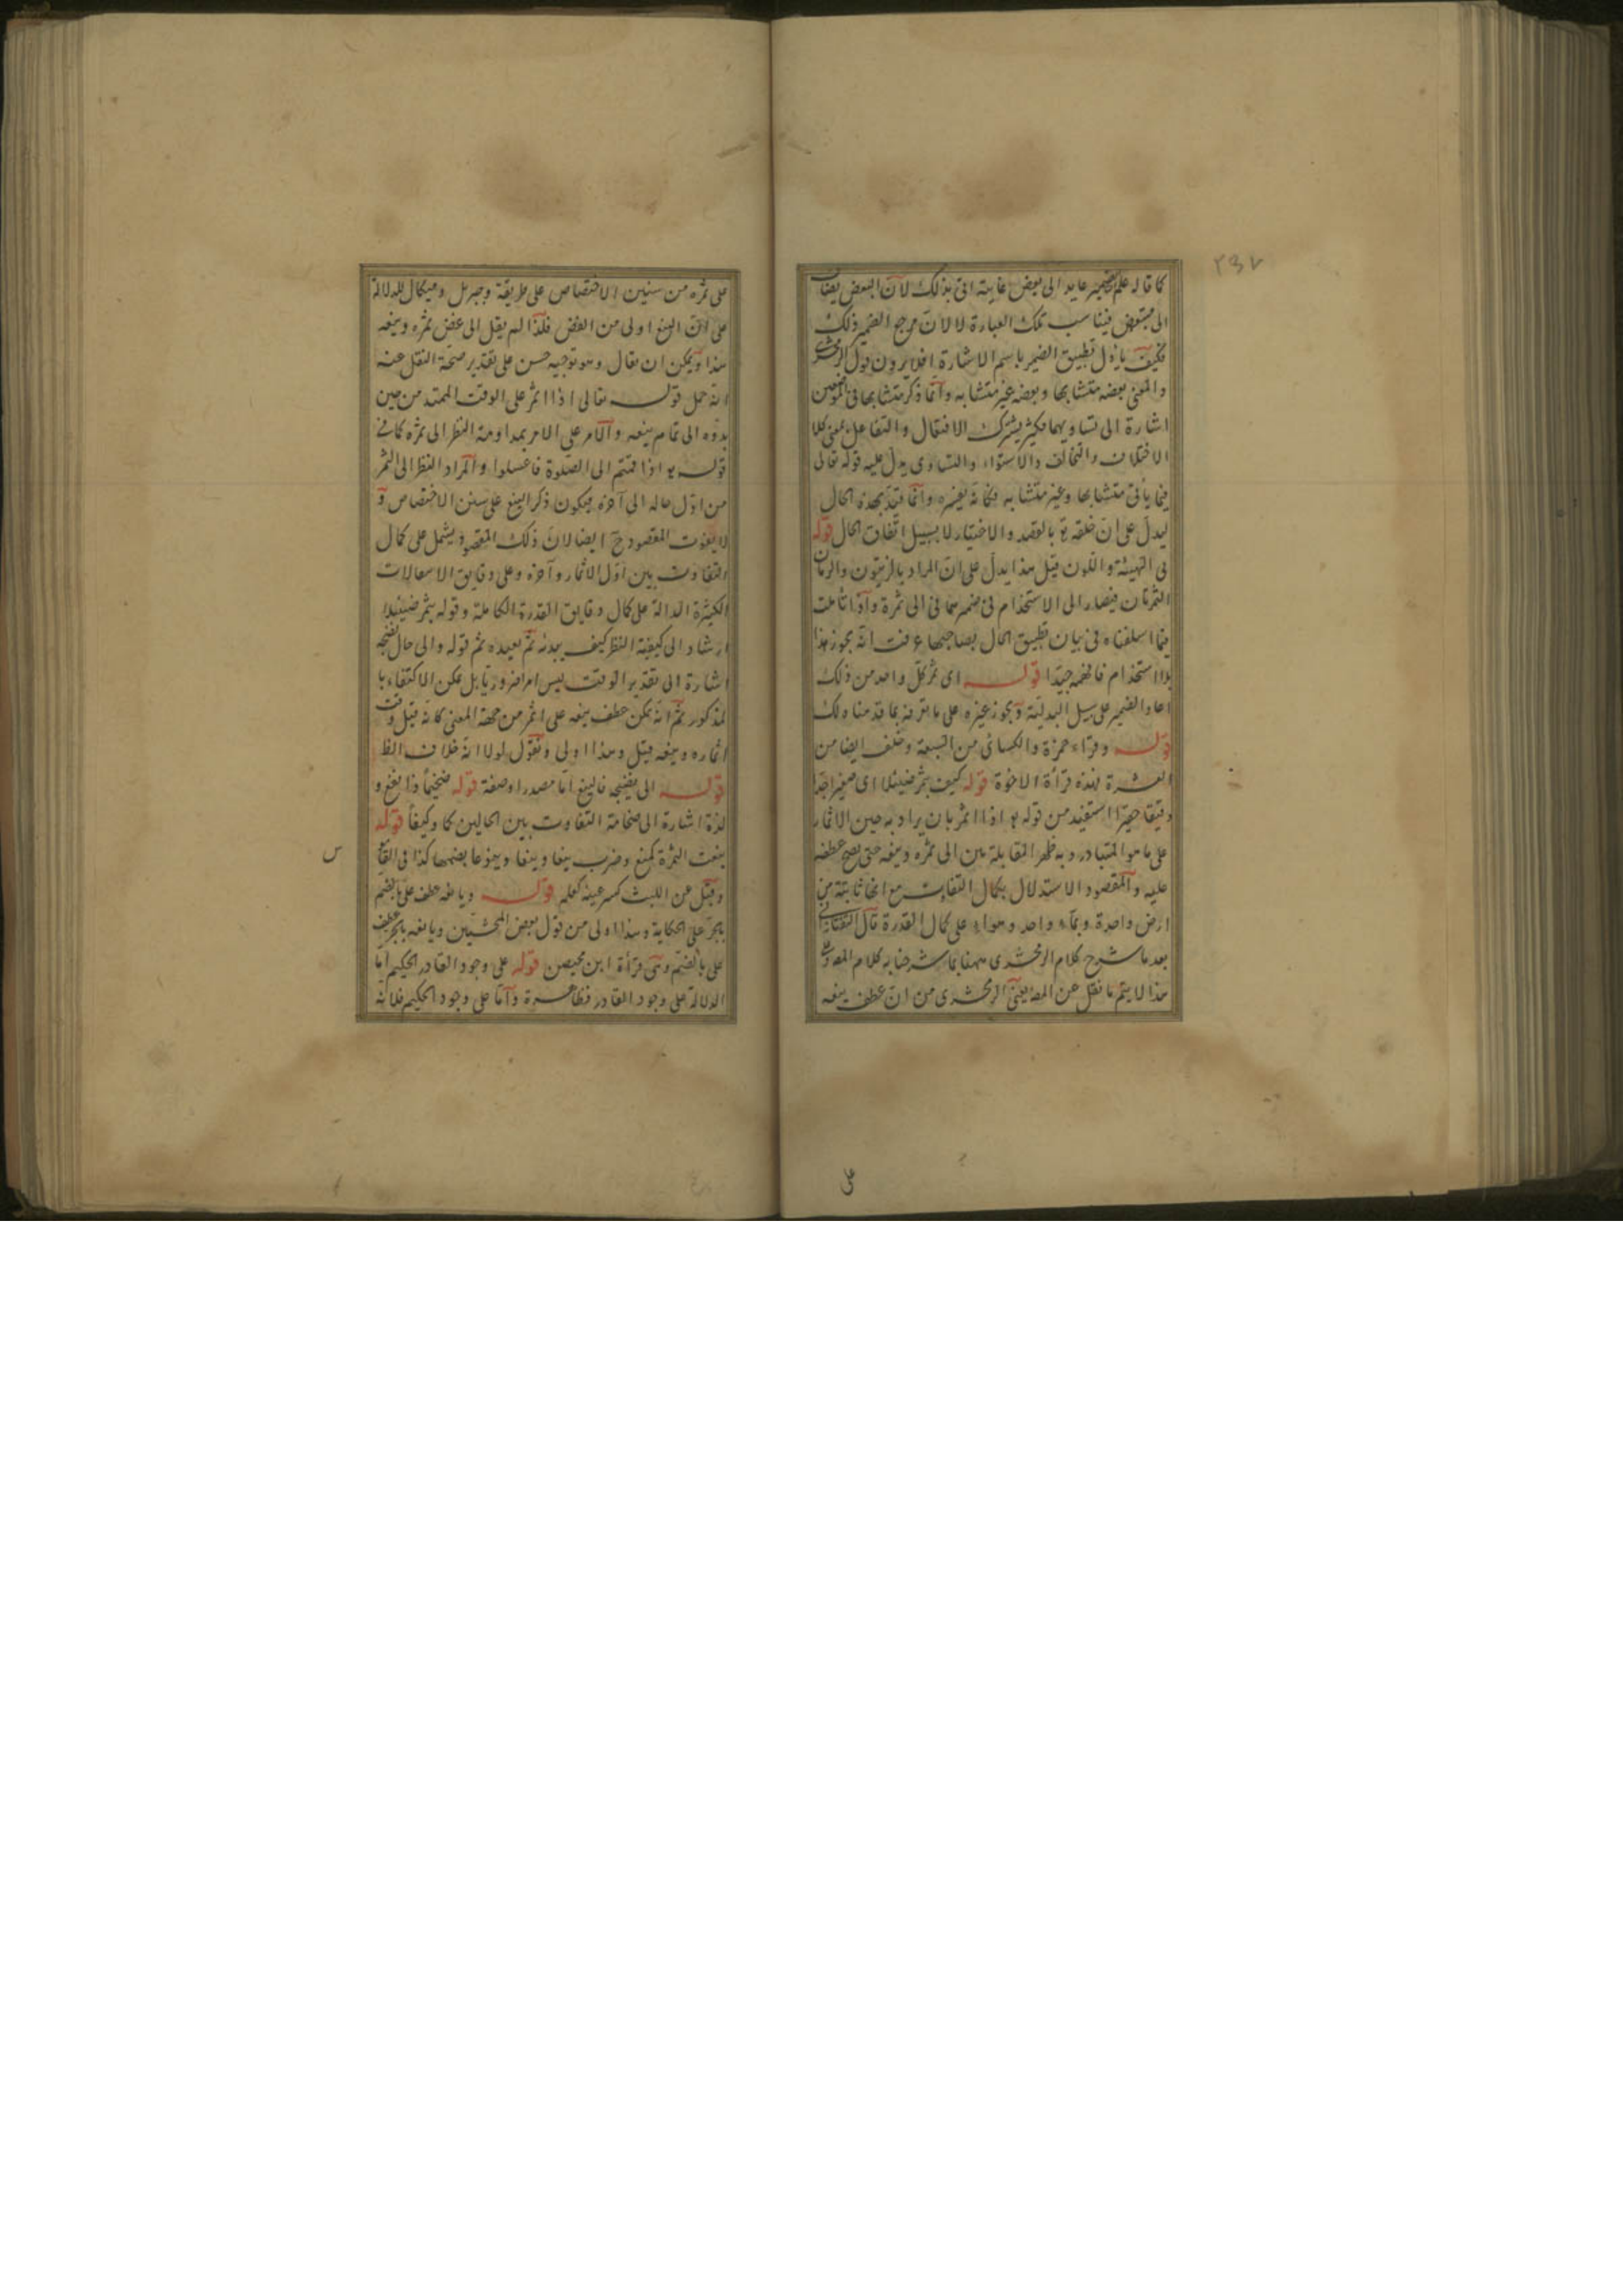 ٢٣٧
كما قاله علم الضمير عايد الى بعض غايته اتى بذلك لان البعض يضاف
الى متبعض فيناسب تلك العبارة لا لان مرجع الضمير ذلك
فكيف يأول تطبيق الضمير باسم الاشارة افلا يرون قول الزمخشرى
والمعنى بعضه متشابها وبعضه غير متشابه وانما ذكر متشابها فى الموضعين
اشارة الى تساويهما فكثير يشترك الافتعال والتفاعل بمعنى كلا
الاختلاف والتخالف والاستواء والتساوى يدل عليه قوله تعالى
فيما يأتى متشابها وغير متشابه فكانه يفسره وانما قيد بهذه الحال
ليدل على ان خلقه تع بالقصد والاختيار لا بسبيل اتفاق الحال قوله
فى الهيئة واللون قيل هذا يدل على ان المراد بالزيتون والرمان
الثمرتان فيصار الى الاستخدام فى ضميرهما فى الى ثمرة واذا تاملت
فيما اسلفناه فى بيان تطبيق الحال بصاحبها عرفت انه يجوز هذا
بلا استخدام فافهمه جيدا قوله اى ثمر كل واحد من ذلك
اعاد الضمير على سبيل البدلية ويجوز غيره على ما تعرفه بما قدمناه لك
قوله وقراء حمزة والكسائى من السبعة وخلف ايضا من
العشرة فهذه قرأة الاخوة قوله كيف يثمر ضئيلا اى صغيرا جدا
دقيقا حقيرا استفيد من قوله تع اذا اثمر بان يراد به حين الاثمار
على ما هو المتبادر وبه ظهر المقابلة بين الى ثمره وينعه حتى يصح عطفه
عليه والمقصود الاستدلال بكمال التفاوت مع انها ثابتة من
ارض واحدة وبماء واحد وهواء على كمال القدرة قال التفتازانى
بعد ما شرح كلام الزمخشرى ههنا بما شرحنا به كلام المصـ وعلى
هذا لا يتم ما نقل عن المصـ يعنى الزمخشرى من ان عطف ينعه
على
على ثمره من سنن الاختصاص على طريقة وجبريل وميكال للدلالة
على ان الينع اولى من الغض فلذا لم يقل الى غض ثمره وينعه
هذا ويمكن ان يقال وهو توجيه حسن على تقدير صحة النقل عنه
انه حمل قوله تعالى اذا اثمر على الوقت الممتد من حين
بدؤه الى تمام ينعه والامر على الامر بمداومة النظر الى ثمره كما فى
قوله تع اذا قمتم الى الصلوة فاغسلوا والمراد النظر الى الثمر
من اول حاله الى آخره فيكون ذكر الينع على سنن الاختصاص و
لا يفوت المقصود ح ايضا لان ذلك المقصود يشمل على كمال
التفاوت بين اول الاثمار وآخره وعلى دقايق الاستحالات
الكثيرة الدالة على كمال دقايق القدرة الكاملة وقوله يثمر ضئيلا
ارشاد الى كيفية النظر كيف يبدئه ثم يعيده ثم قوله والى حال نضجه
اشارة الى تقدير الوقت ليس امرا ضروريا بل يمكن الاكتفاء با
لمذكور ثم انه يمكن عطف ينعه على اثمر من جهة المعنى كانه قيل وقت
اثماره وينعه قيل وهذا اولى ونقول لولا انه خلاف الظ
قوله الى نضجه فالينع اما مصدر او صفة قوله ضخيما ذا نفع و
لذة اشارة الى ضخامة التفاوت بين الحالين كما وكيفا قوله
ينعت الثمرة كمنع وضرب ينعا وينعا وينوعا بضمهما كذا فى القاموس
س
وقيل عن الليث كسر عينه كعلم قوله ويانعه عطف على بالضم
بالجر على الحكاية وهذا اولى من قول بعض المحشيين ويانعه بالجر عطف
على بالضم وهى قرأة ابن محيصن قوله على وجود القادر الحكيم اما
الدلالة على وجود القادر فظاهرة واما على وجود الحكيم فلانه